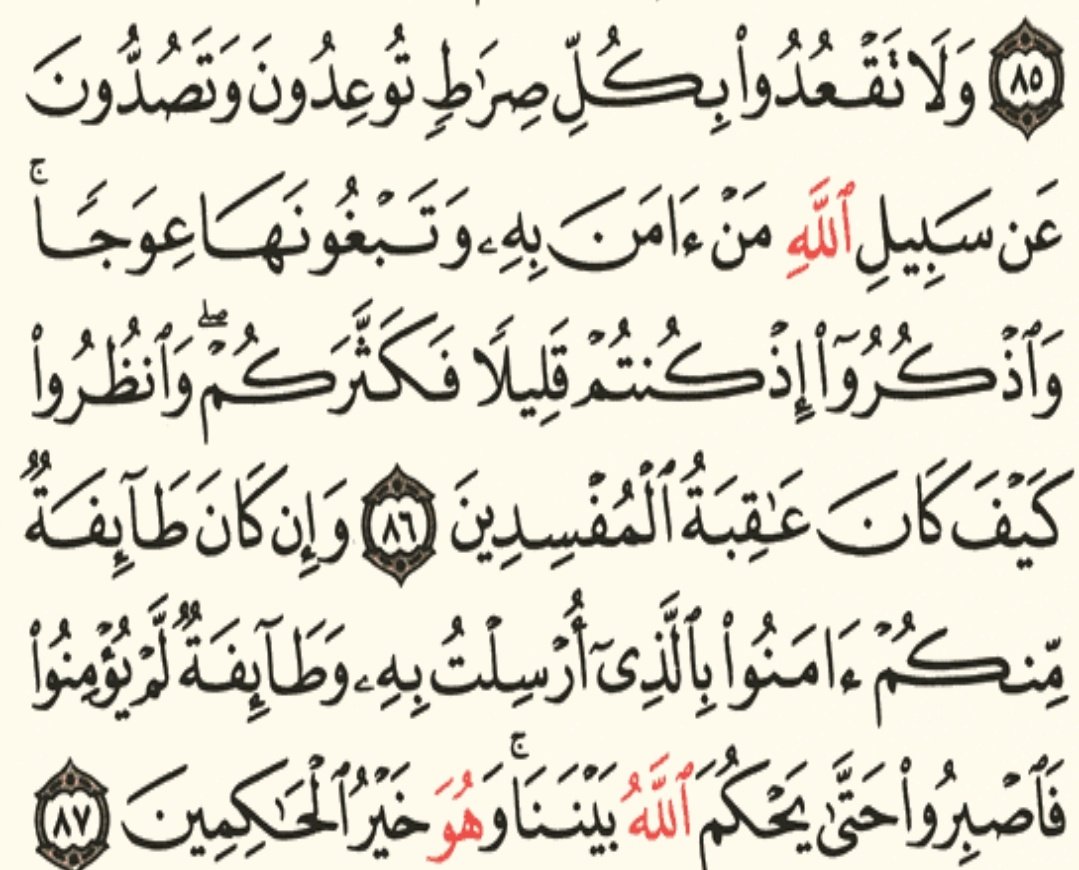 ٨٥ وَلَا تَقْعُدُوا۟ بِكُلِّ صِرَٰطٍ تُوعِدُونَ وَتَصُدُّونَ
عَن سَبِيلِ ٱللَّهِ مَنْ ءَامَنَ بِهِۦ وَتَبْغُونَهَا عِوَجًا ۚ
وَٱذْكُرُوٓا۟ إِذْ كُنتُمْ قَلِيلًا فَكَثَّرَكُمْ ۖ وَٱنظُرُوا۟
كَيْفَ كَانَ عَٰقِبَةُ ٱلْمُفْسِدِينَ ٨٦ وَإِن كَانَ طَآئِفَةٌ
مِّنكُمْ ءَامَنُوا۟ بِٱلَّذِىٓ أُرْسِلْتُ بِهِۦ وَطَآئِفَةٌ لَّمْ يُؤْمِنُوا۟
فَٱصْبِرُوا۟ حَتَّىٰ يَحْكُمَ ٱللَّهُ بَيْنَنَا ۚ وَهُوَ خَيْرُ ٱلْحَٰكِمِينَ ٨٧